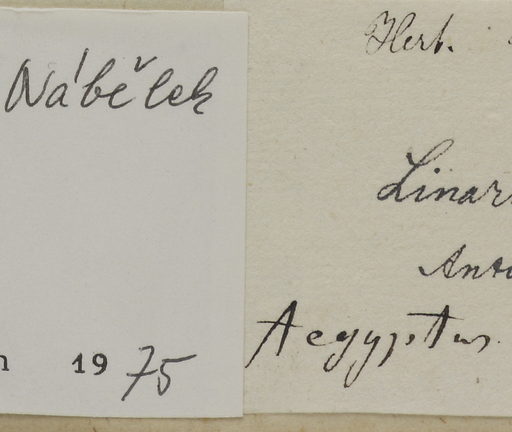 Nábělek
n 19 75
Herb.
Linar
Anti
Aegyptus.